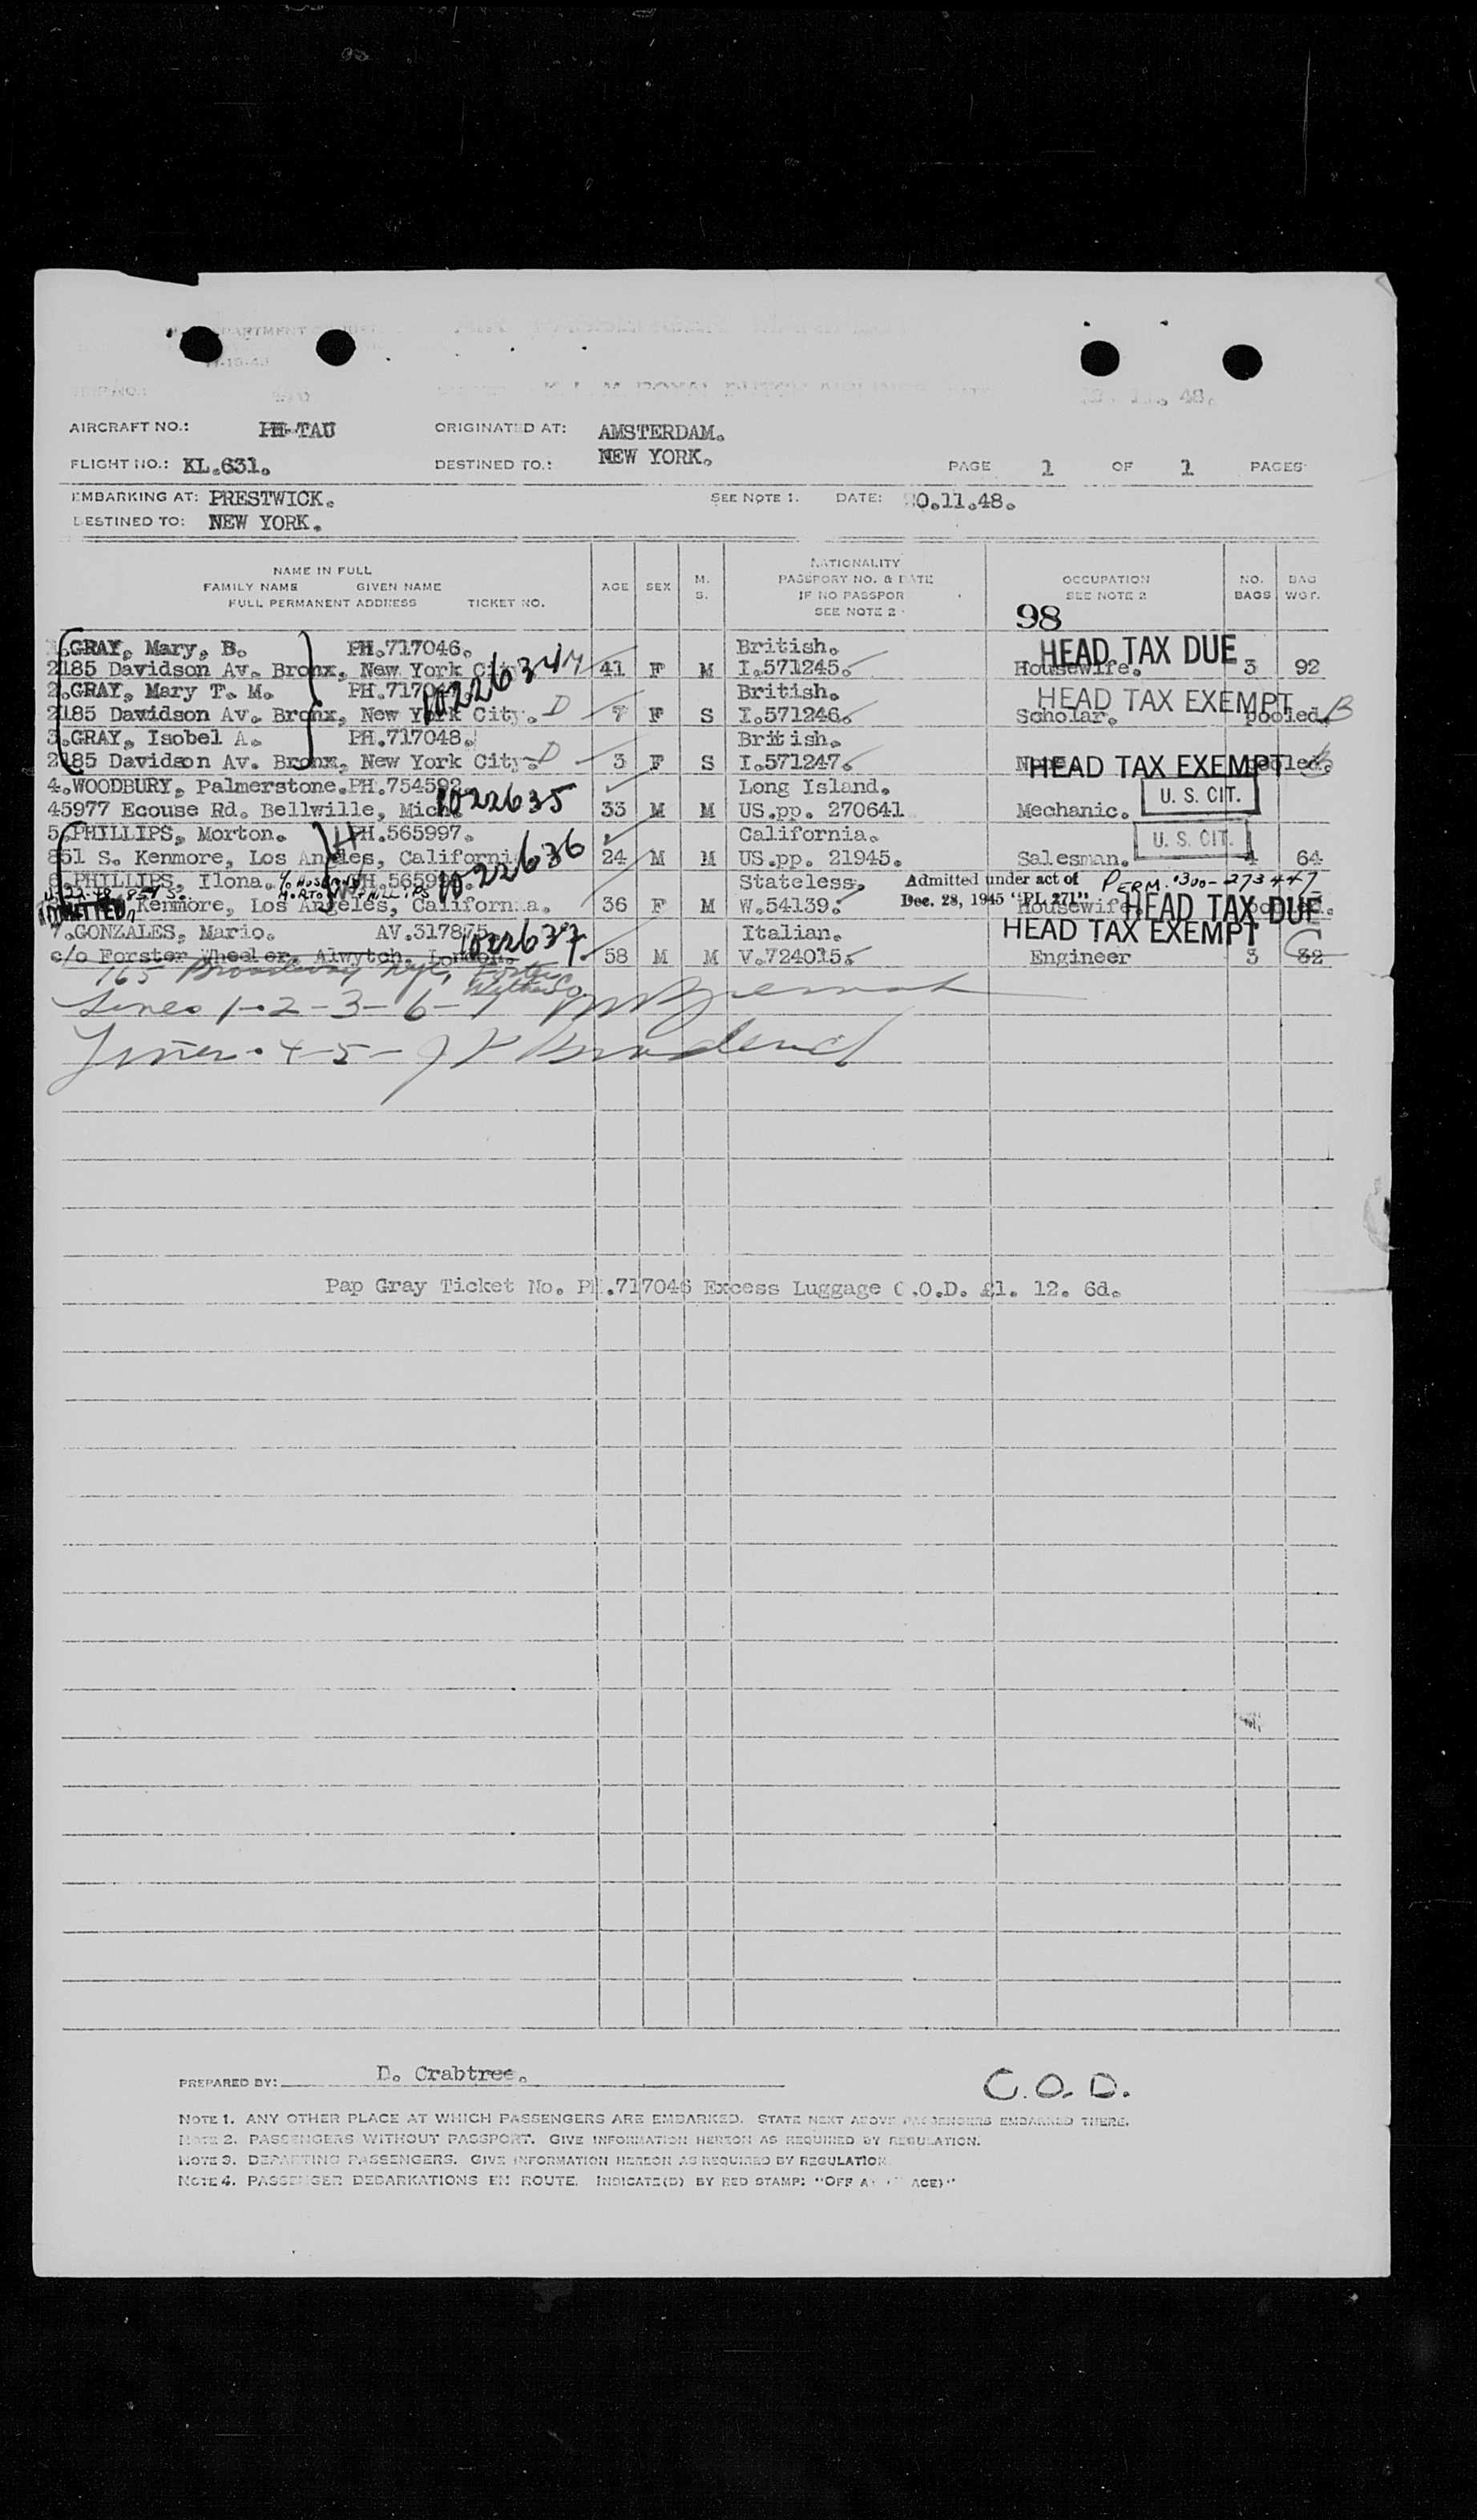 AIRCRAFT NO.: PH-TAU ORIGINATED AT: AMSTERDAM.
FLIGHT NO.: KL.631. DESTINED TO.: NEW YORK. PAGE 1 OF 1 PAGES
EMBARKING AT: PRESTWICK. SEE NOTE 1. DATE: 20.11.48.
DESTINED TO: NEW YORK.
NAME IN FULL
FAMILY NAME GIVEN NAME
FULL PERMANENT ADDRESS TICKET NO.
AGE SEX M. S.
NATIONALITY
PASSPORT NO. & DATE
IF NO PASSPOR
SEE NOTE 2
OCCUPATION
SEE NOTE 2
NO. BAGS
BAG WGT.
98
GRAY, Mary, B. PH.717046. British. HEAD TAX DUE
2185 Davidson Av. Bronx, New York City 41 F M I.571245. Housewife. 3 92
2.GRAY, Mary T. M. British. HEAD TAX EXEMPT
2185 Davidson Av. Bronx, New York City. D 7 F S I.571246. Scholar. pooled. B
3.GRAY, Isobel A. PH.717048. British.
2185 Davidson Av. Bronx, New York City. D 3 F S I.571247. HEAD TAX EXEMPT
4.WOODBURY, Palmerstone. PH.754592 Long Island. U. S. CIT.
45977 Ecouse Rd. Bellwille, Mich. 1022635 33 M M US.pp. 270641 Mechanic.
5.PHILLIPS, Morton. PH.565997. California. U. S. CIT.
851 S. Kenmore, Los Angeles, California 1022636 24 M M US.pp. 21945. Salesman. 4 64
6.PHILLIPS, Ilona. Stateless. Admitted under act of PERM. 1300-273447
ADMITTED Kenmore, Los Angeles, California. 36 F M W.54139. Dec. 28, 1945 "PL 271" Housewife. HEAD TAX DUE
7.GONZALES, Mario. AV.317875 1022637 Italian. HEAD TAX EXEMPT
c/o Forster Wheeler, Alwytch, London. 58 M M V.724015. Engineer 3 32
165 Broadway
Lines 1-2-3-6-7
Lines 4-5-
Pap Gray Ticket No. PH.717046 Excess Luggage C.O.D. £1. 12. 6d.
PREPARED BY: D. Crabtree. C.O.D.
NOTE 1. ANY OTHER PLACE AT WHICH PASSENGERS ARE EMBARKED. STATE NEXT ABOVE PASSENGERS EMBARKED THERE.
NOTE 2. PASSENGERS WITHOUT PASSPORT. GIVE INFORMATION HEREON AS REQUIRED BY REGULATION.
NOTE 3. DEPARTING PASSENGERS. GIVE INFORMATION HEREON AS REQUIRED BY REGULATION
NOTE 4. PASSENGER DEBARKATIONS EN ROUTE. INDICATE(D) BY RED STAMP: "OFF A ACE)"